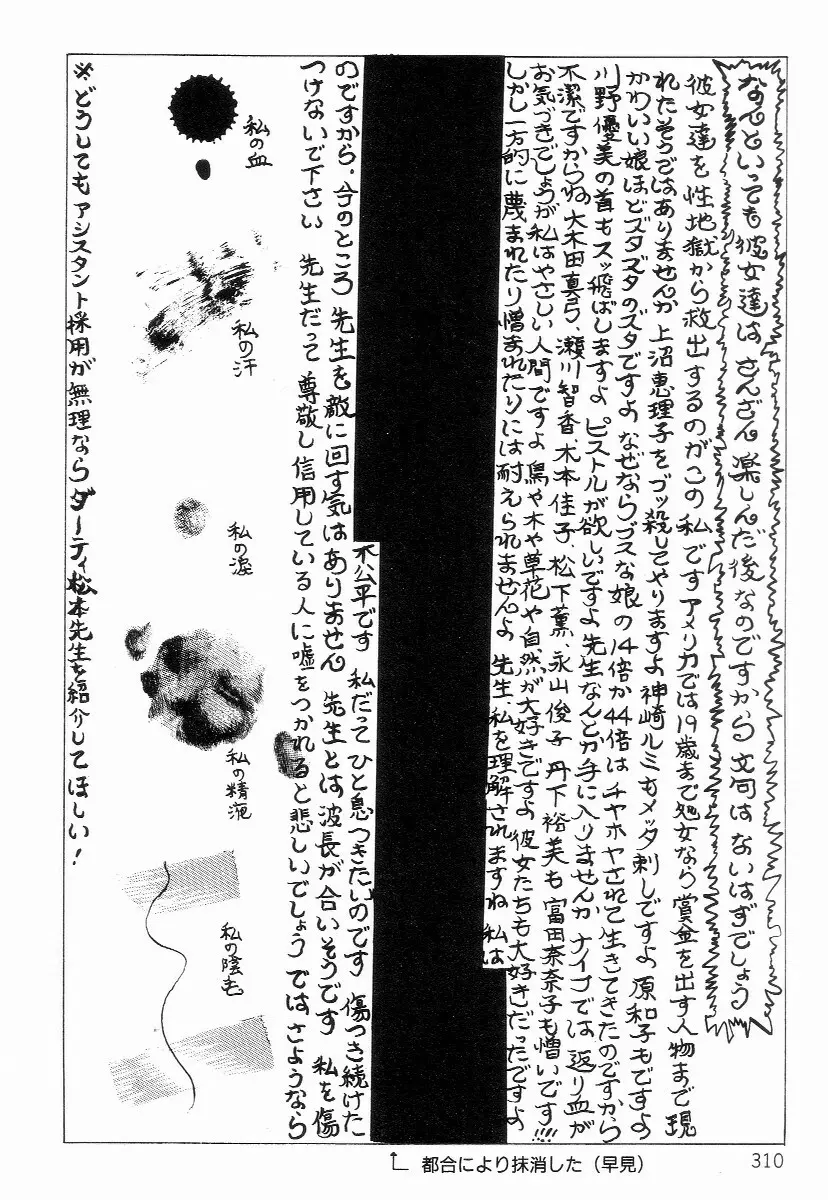 なんといっても彼女達はさんざん楽しんだ後なのですから文句はないはずでしょう
彼女達を性地獄から救出するのがこの私ですアメリカでは19歳まで処女なら賞金を出す人物まで現
れたそうではありませんか 上沼恵理子をブッ殺してやりますよ神崎ルミもメッタ刺しですよ 原和子もですよ
かわいい娘ほどズタズタのズタですよ なぜならブスな娘の14倍か44倍はチヤホヤされて生きてきたのですから
川野優美の首もスッ飛ばしますよ ピストルが欲しいですよ先生なんとか手に入りませんか ナイフでは返り血が
不潔ですからね 大木田真弓、瀬川智香、木本佳子、松下薫、永山俊子 丹下裕美も富田奈奈子も憎いです!!!
お気づきでしょうが私はやさしい人間ですよ 鳥や木や草花や自然が大好きですよ 彼女たちも大好きだったですよ
しかし一方的に蔑まれたり憎まれたりには耐えられませんよ 先生、私を理解されますね 私は
不公平です 私だってひと息つきたいのです 傷つき続けた
のですから、今のところ先生を敵に回す気はありません 先生とは波長が合いそうです 私を傷
つけないで下さい 先生だって尊敬し信用している人に嘘をつかれると悲しいでしょう ではさようなら
私の血
私の汗
私の涙
私の精液
私の陰毛
※どうしてもアシスタント採用が無理ならダーティ松本先生を紹介してほしい!
都合により抹消した(早見)
310